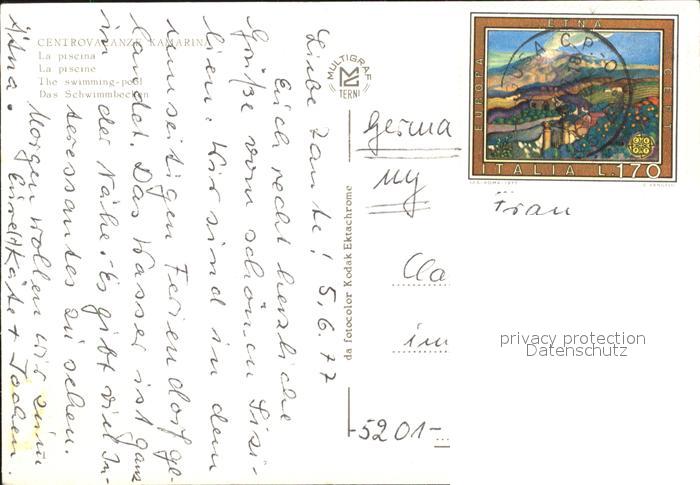 CENTROVACANZE KAMARINA
La piscina
La piscine
The swimming-pool
Das Schwimmbecken
MULTIGRAF
TERNI
da fotocolor Kodak Ektachrome
EUROPA
ETNA
CEPT
ITALIA L.170
I.P.S.-ROMA-1977
Liebe Tante! 5.6.77
Euch recht herzliche
Grüße vom schönen Sizi-
lien. Wir sind in dem
umseitigen Feriendorf ge-
landet. Das Wasser ist ganz
in der Nähe. Es gibt viel In-
teressantes zu sehen.
Morgen wollen wir zum
Ätna.
Käte + Jochen.
Germa
ny
Frau
Cla
im
5201-
privacy protection
Datenschutz